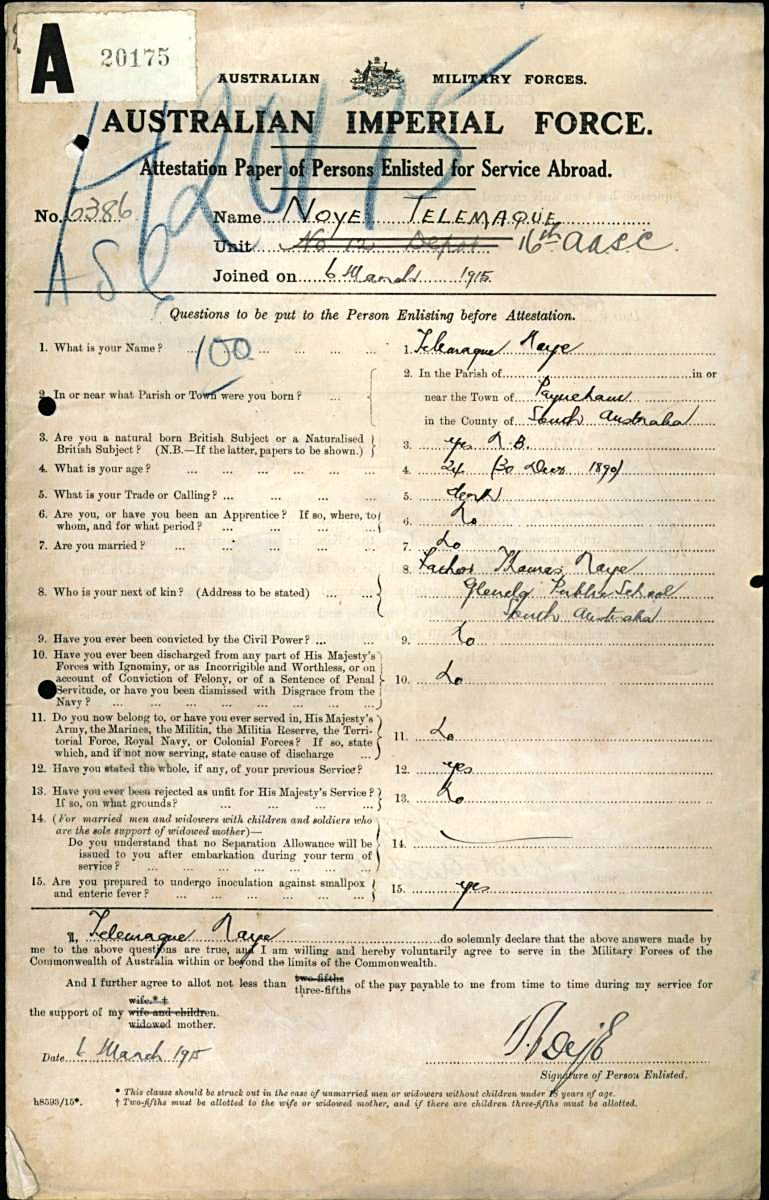 A 20175
AUSTRALIAN MILITARY FORCES.
AUSTRALIAN IMPERIAL FORCE.
Attestation Paper of Persons Enlisted for Service Abroad.
20175
No. 6386 Name NOYE TELEMAQUE
Unit No 12 Depot 16th AASC.
A S 6
Joined on 6 March 1915.
Questions to be put to the Person Enlisting before Attestation.
1. What is your Name? ... ... ... ... 1. Telemaque Noye
100
2. In or near what Parish or Town were you born? ... 2. In the Parish of in or
near the Town of Payneham
in the County of South Australia
3. Are you a natural born British Subject or a Naturalised
British Subject? (N.B.—If the latter, papers to be shown.) 3. yes N.B.
4. What is your age? ... ... ... ... ... ... 4. 24 (30 Decr 1890)
5. What is your Trade or Calling? ... ... ... ... 5. Clerk
6. Are you, or have you been an Apprentice? If so, where, to
whom, and for what period? ... ... ... ... 6. No
7. Are you married? ... ... ... ... ... 7. No
8. Who is your next of kin? (Address to be stated) ... ... 8. Father Thomas Noye
Glenelg Public School
South Australia
9. Have you ever been convicted by the Civil Power? ... ... 9. No
10. Have you ever been discharged from any part of His Majesty's
Forces with Ignominy, or as Incorrigible and Worthless, or on
account of Conviction of Felony, or of a Sentence of Penal
Servitude, or have you been dismissed with Disgrace from the
Navy? ... ... ... ... ... ... ... ... 10. No
11. Do you now belong to, or have you ever served in, His Majesty's
Army, the Marines, the Militia, the Militia Reserve, the Terri-
torial Force, Royal Navy, or Colonial Forces? If so, state
which, and if not now serving, state cause of discharge ... 11. No
12. Have you stated the whole, if any, of your previous Service? 12. yes
13. Have you ever been rejected as unfit for His Majesty's Service?
If so, on what grounds? ... ... ... ... ... 13. No
14. (For married men and widowers with children and soldiers who
are the sole support of widowed mother)—
Do you understand that no Separation Allowance will be
issued to you after embarkation during your term of
service? ... ... ... ... ... ... ... 14.
15. Are you prepared to undergo inoculation against smallpox
and enteric fever? ... ... ... ... ... ... 15. yes
I, Telemaque Noye do solemnly declare that the above answers made by
me to the above questions are true, and I am willing and hereby voluntarily agree to serve in the Military Forces of the
Commonwealth of Australia within or beyond the limits of the Commonwealth.
two-fifths
And I further agree to allot not less than three-fifths of the pay payable to me from time to time during my service for
wife.*†
the support of my wife and children.
widowed mother.
Date 6 March 1915
Signature of Person Enlisted.
* This clause should be struck out in the case of unmarried men or widowers without children under 18 years of age.
h8593/15*. † Two-fifths must be allotted to the wife or widowed mother, and if there are children three-fifths must be allotted.